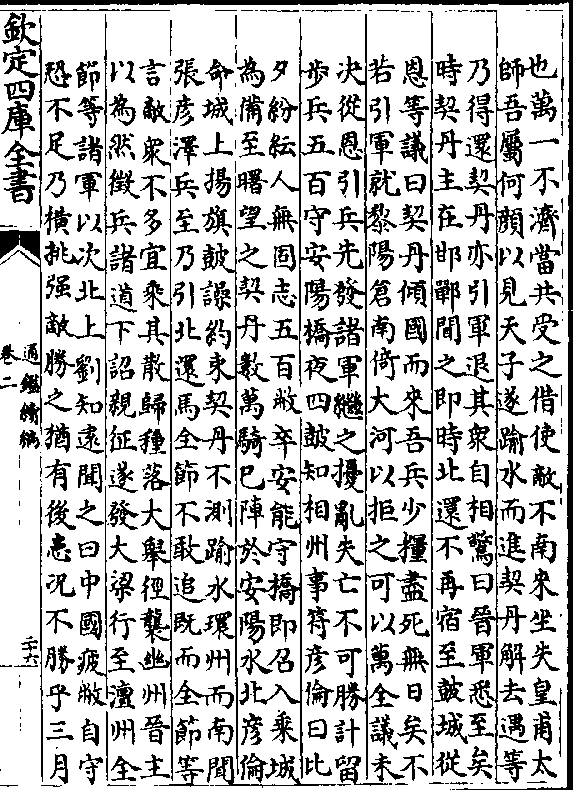 也萬一不濟當共受之借使敵不南來坐失皇甫太
師吾屬何顔以見天子遂踰水而進契丹解去遇等
乃得還契丹亦引軍退其衆自相驚曰晉軍悉至矣
時契丹主在邯鄲聞之即時北還不再宿至鼓城從
恩等議曰契丹傾國而來吾兵少糧盡死無日矣不
若引軍就黎陽倉南倚大河以拒之可以萬全議未
決從恩引兵先發諸軍繼之擾亂失亡不可勝計留
步兵五百守安陽橋夜四鼓知相州事符彦倫曰比
夕紛紜人無固志五百敝卒安能守橋即召入乘城
為備至曙望之契丹數萬騎已陣於安陽水北彦倫
命城上揚旗鼓譟約束契丹不測踰水環州而南聞
張彦澤兵至乃引北還馬全節不敢追既而全節等
言敵衆不多宜乘其散歸種落大舉徑襲幽州晉主
以為然徴兵諸道下詔親征遂發大梁行至澶州全
節等諸軍以次北上劉知逺聞之曰中國疲敝自守
恐不足乃横挑强敵勝之猶有後患況不勝乎三月
欽定四庫全書
通鑑續編
卷二
二十六